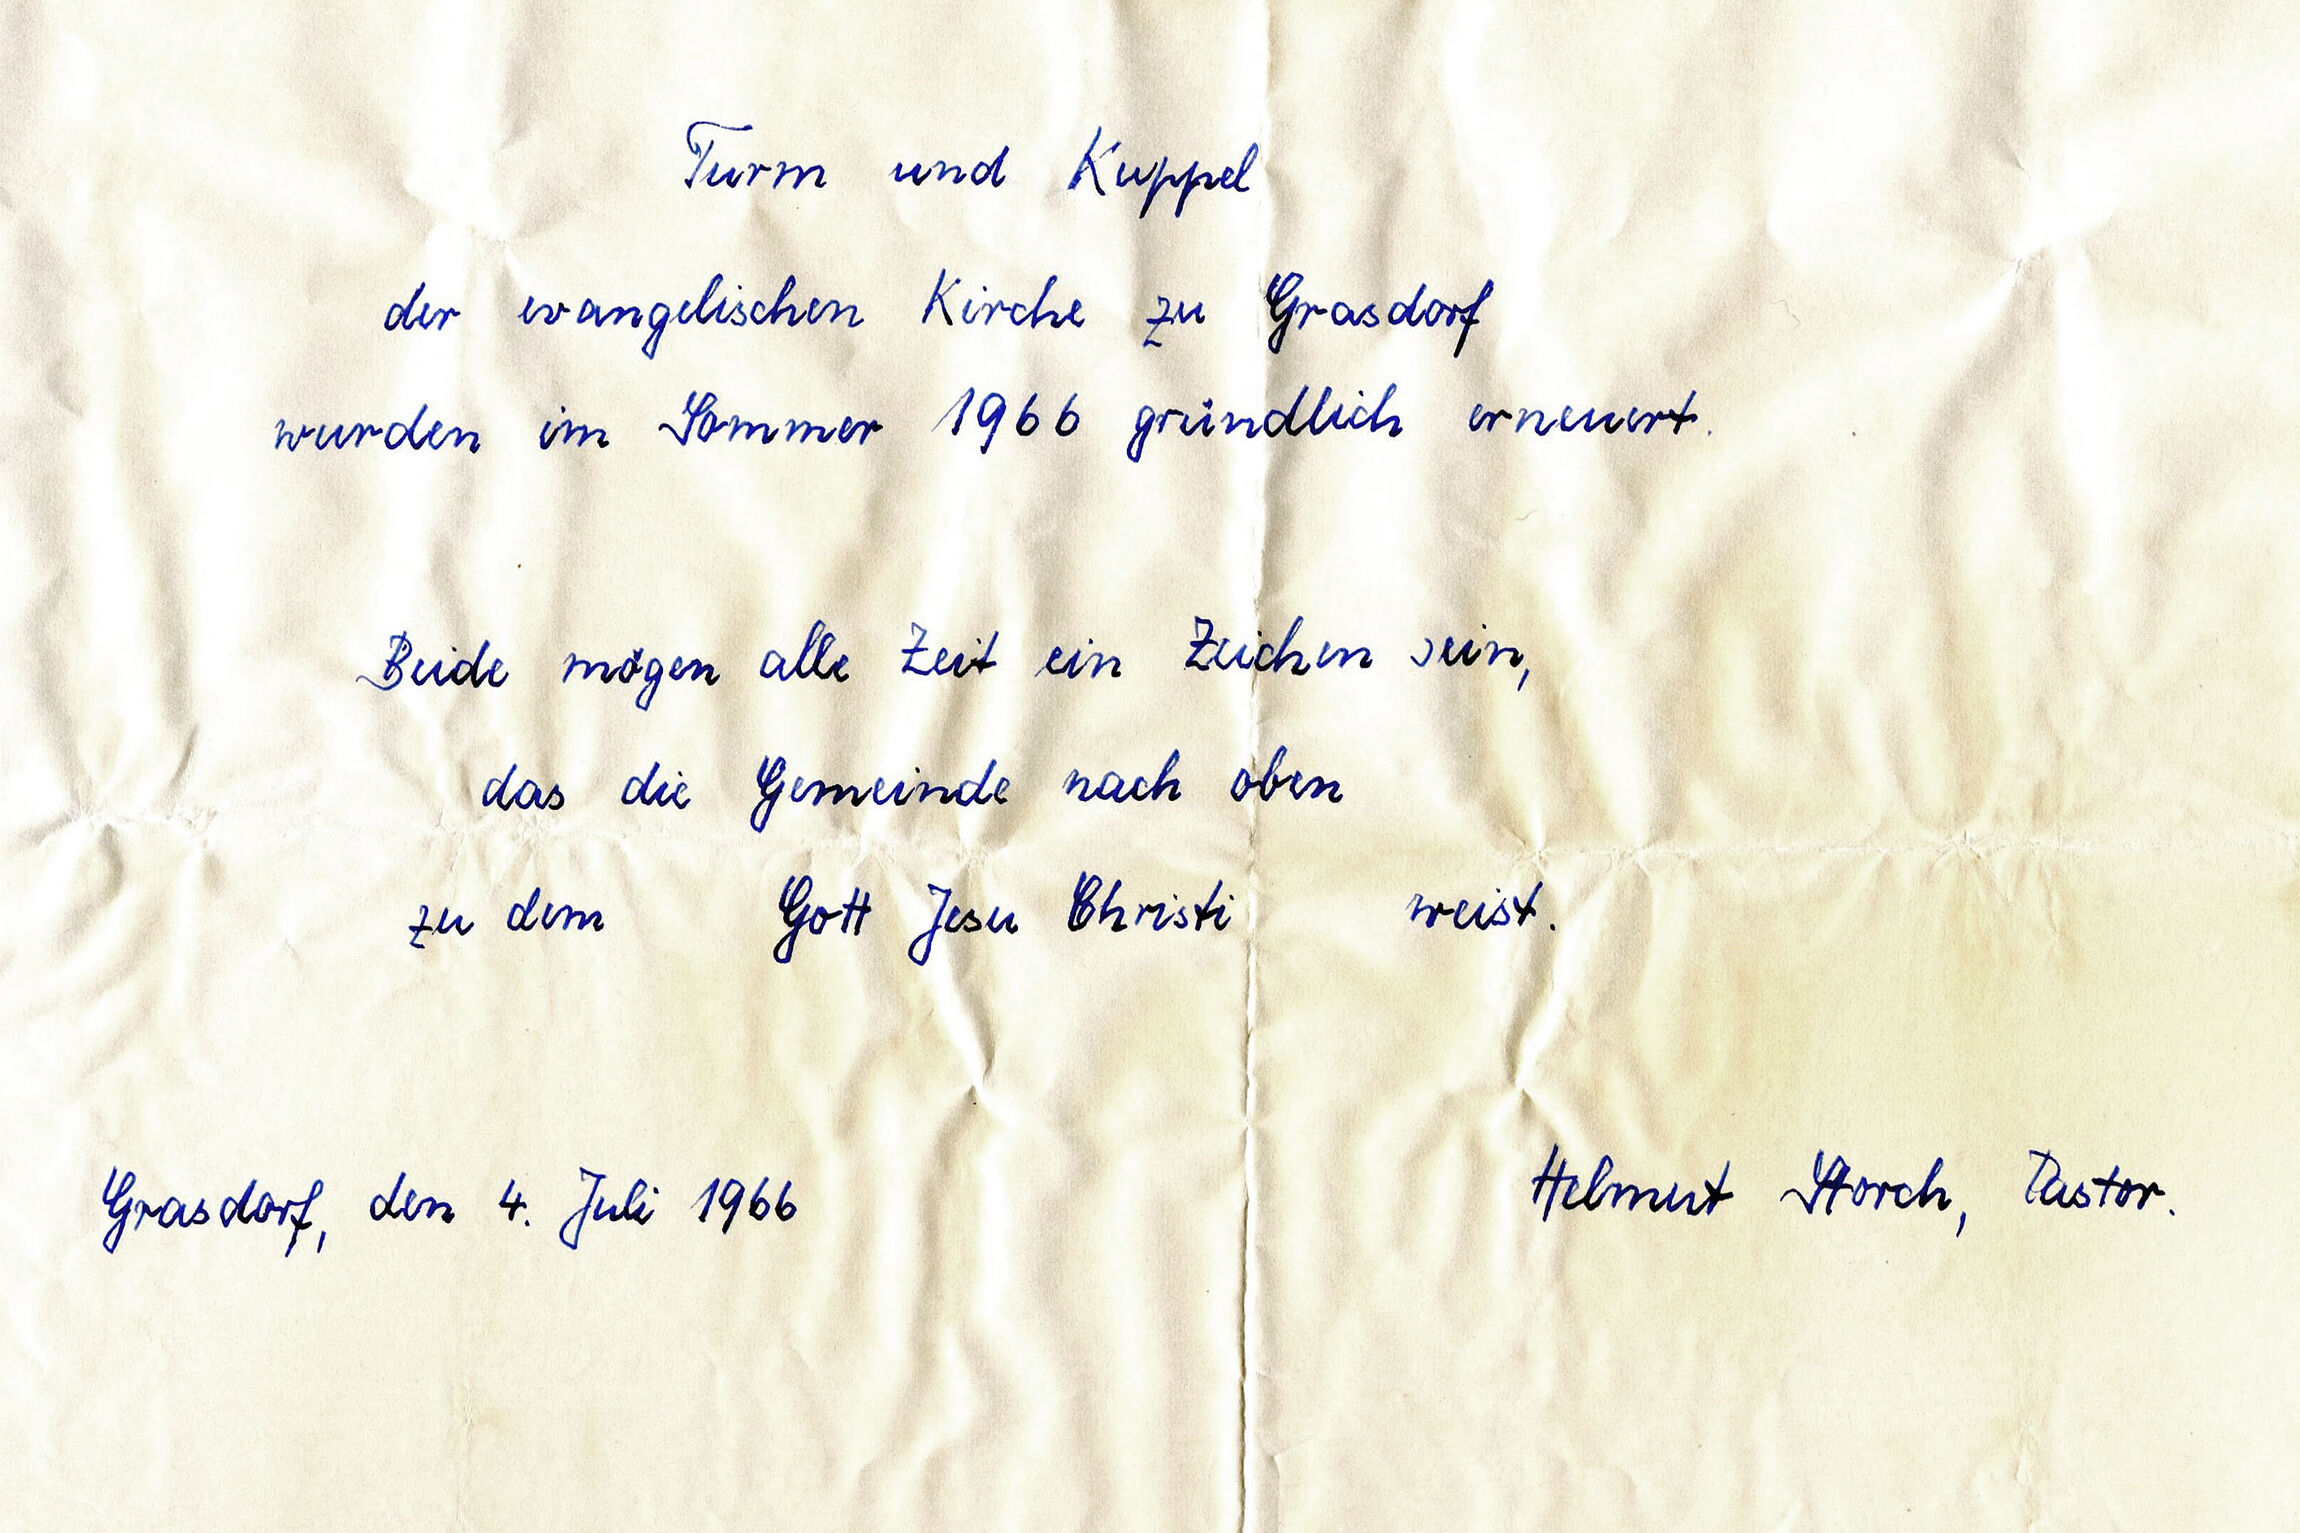 Turm und Kuppel
der evangelischen Kirche zu Grasdorf
wurden im Sommer 1966 gründlich erneuert.
Beide mögen alle Zeit ein Zeichen sein,
das die Gemeinde nach oben
zu dem Gott Jesu Christi weist.
Grasdorf, den 4. Juli 1966 Helmut Storch, Pastor.